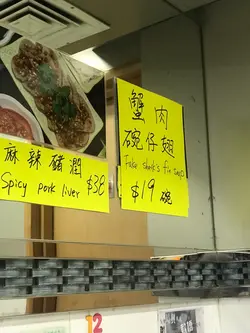 麻辣豬潤
Spicy pork liver $38
蟹肉
碗仔翅
Fake shark's fin soup
$19碗
12